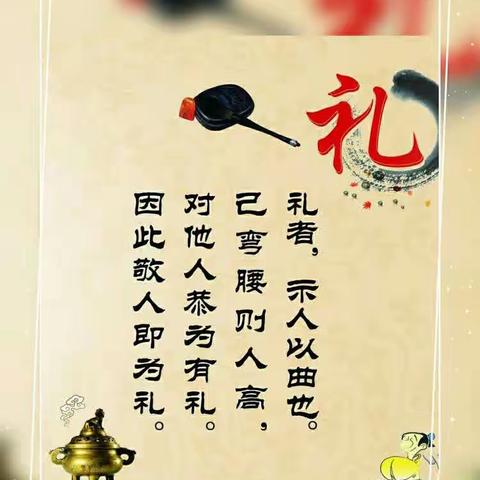 礼
礼者，示人以曲也。
己弯腰则人高，
对他人恭为有礼。
因此敬人即为礼。